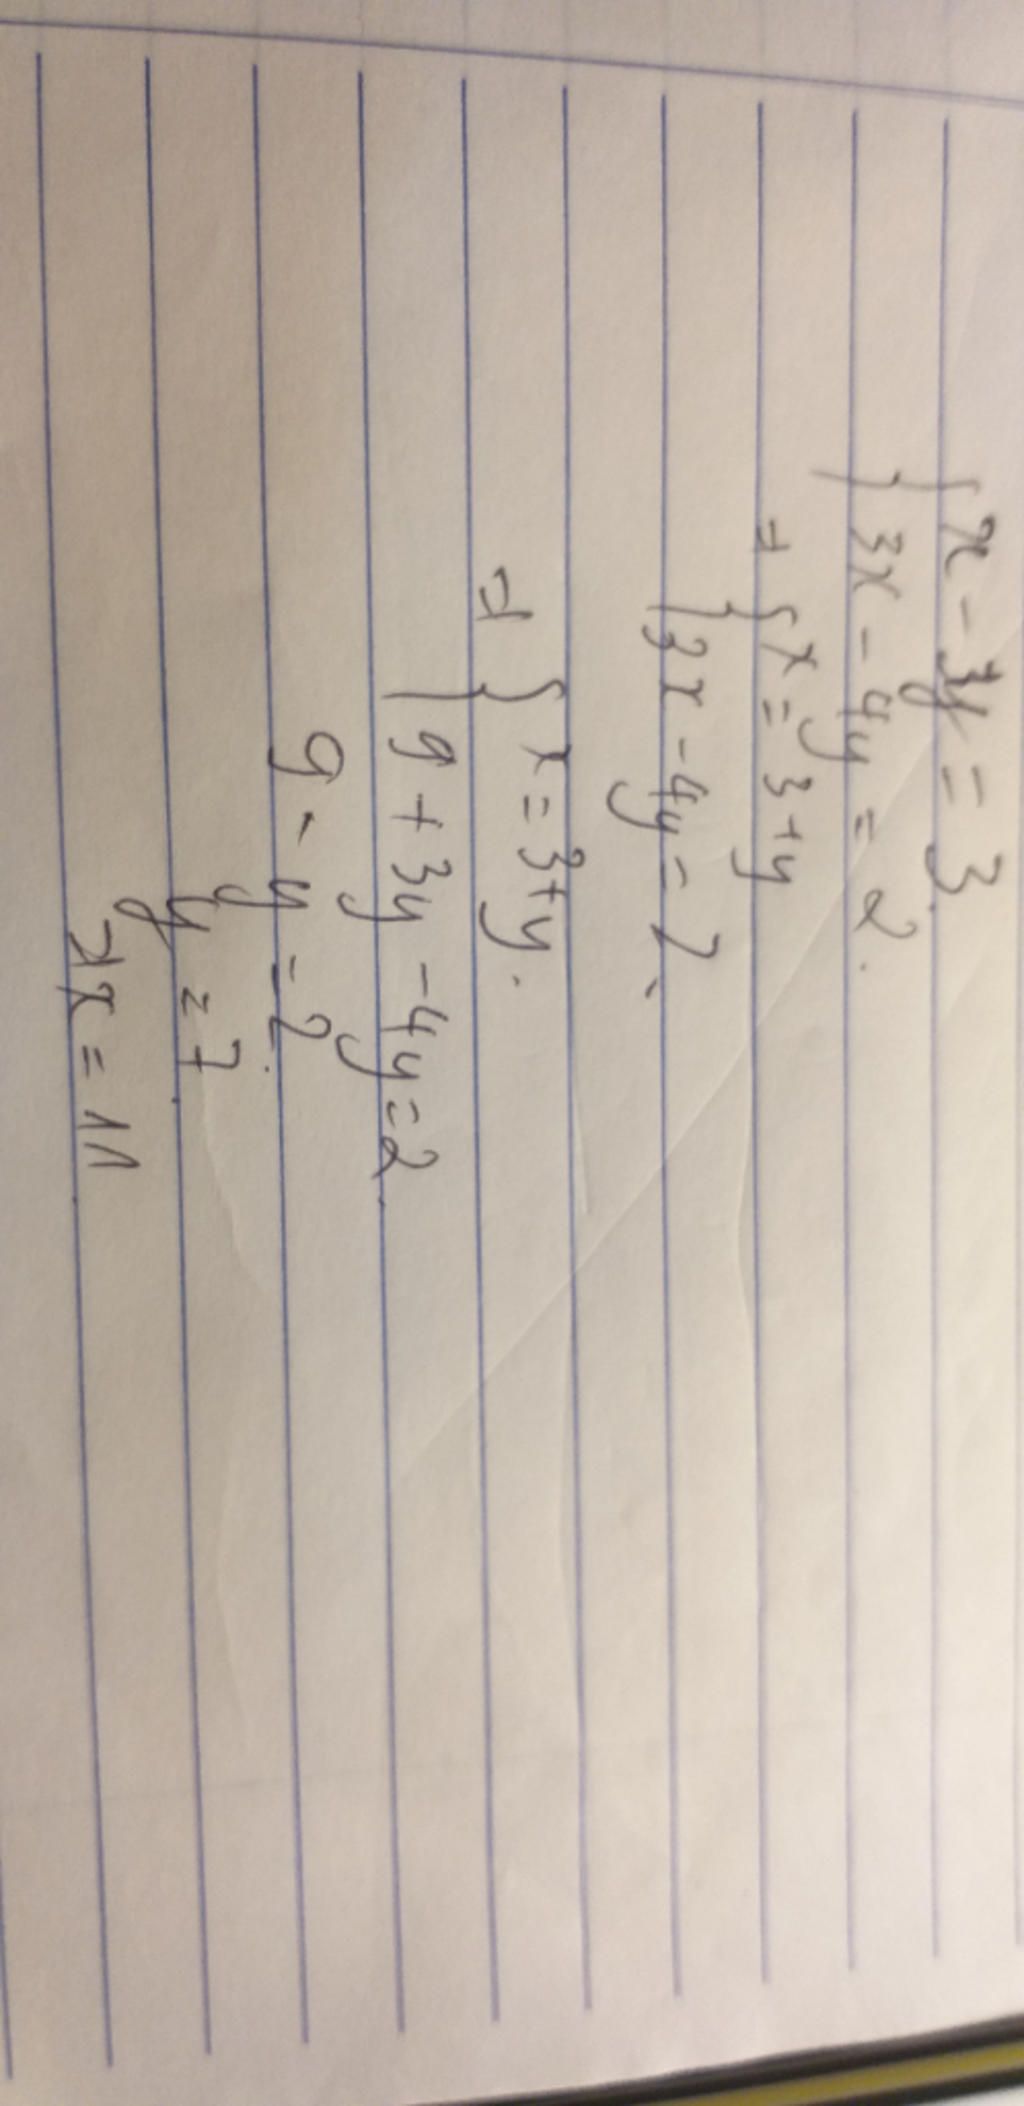 { x - y = 3
{ 3x - 4y = 2.
⇒ { x = 3 + y
{ 3x - 4y = 2.
⇒ { x = 3 + y.
{ 9 + 3y - 4y = 2.
9 - y = 2.
y = 7.
⇒ x = 11.